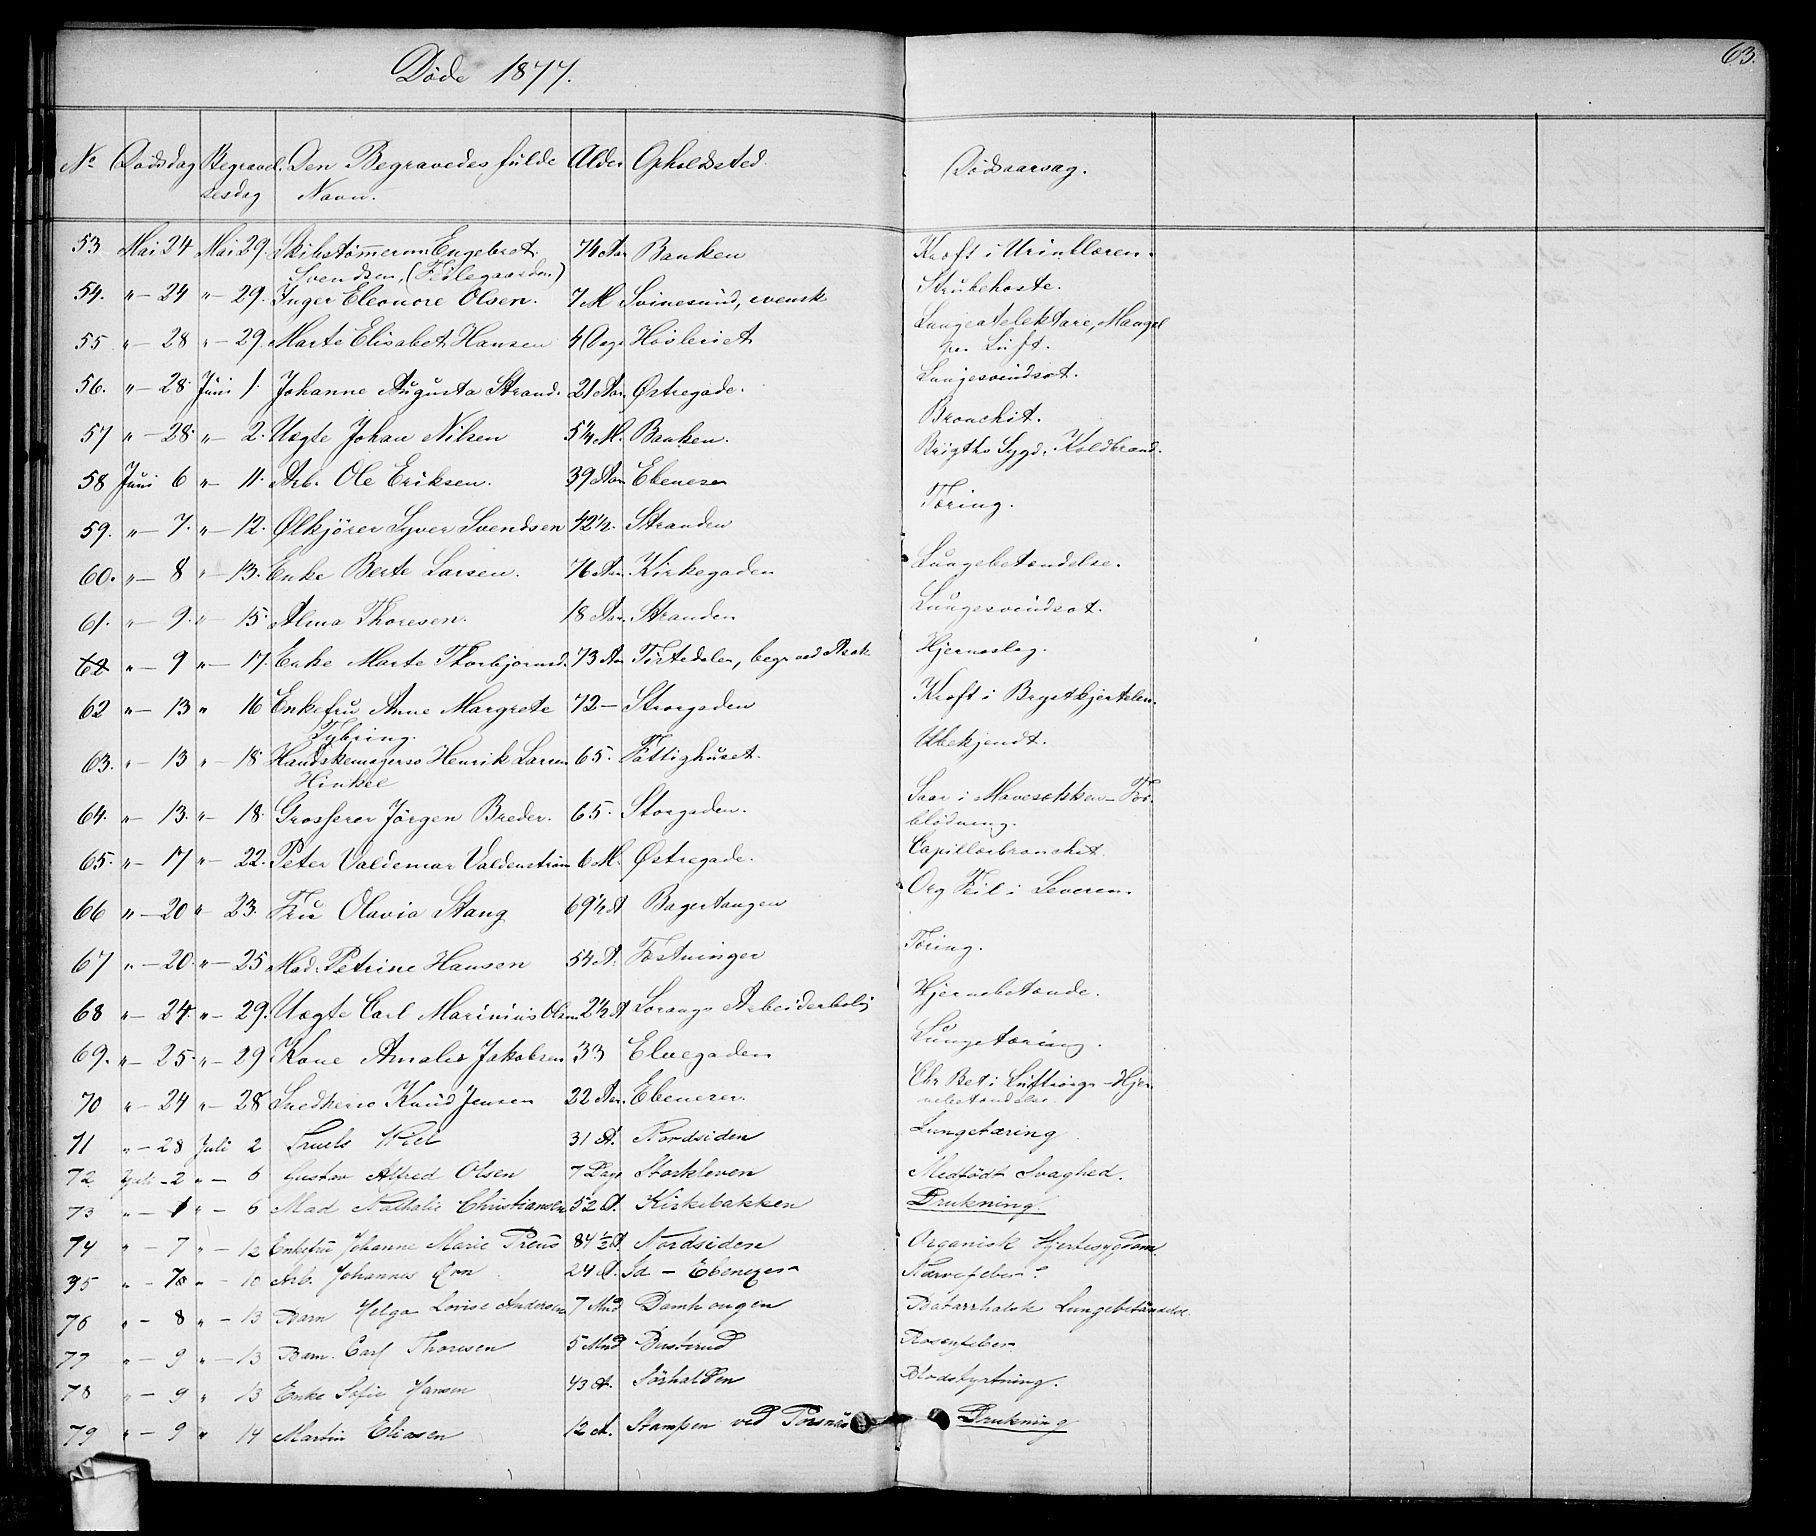 Døde 1877.
63.
No Dødsdag Begravel- Den Begravedes fulde Alder Opholdsted. Dødsaarsag.
sesdag Navn.
53 Mai 24 Mai 29. Skibstømmerm. Engebret 74 Aar Banken Kræft i Urinblæren.
Svendsen,
54. " — 24 " — 29. Inger Eleonore Olsen. 7 M Svinesund, svensk Strubehoste.
55 " — 28 " — 29. Marte Elisabet Hansen 4 Høvleriet Lungeatelektase, Mangel
paa Luft.
56. " — 28. Juni 1. Johanne Augusta Strand. 21 Aar. Østregade. Lungesvindsot.
57 " — 28. " — 2. Uægte Johan Nilsen 5 1/4 M. Banken. Bronchit.
58 Juni 6 " — 11. Arb. Ole Eriksen. 39 Aar. Ebeneser Brigths Sygd. Koldbrand.
59. " — 7. " — 12. Ølkjører Syver Svendsen 42 1/2. Stranden Tæring.
60. " — 8 " — 13. Enke Berte Larsen. 76 Aar. Kirkegaden Lungebetændelse.
61. " — 9. " — 15. Alma Thoresen. 18 Aar. Stranden Lungesvindsot.
62 " — 9 " — 17. Enke Marte Thorbjørnsd. 73 Aar Tistedalen, begr. ved Asak Hjerneslag.
62 " — 13 " 16 Enkefru Anne Margrete 72 — Storgaden Kræft i Brystkjertelen.
Tybring.
63. " — 13 " — 18. Handskemagersv Henrik Larsen 65. Fattighuset. Ubekjendt.
Hinkel
64. " — 13. " — 18. Grosserer Jørgen Breder. 65. Storgaden. Saar i Mavesækken — For-
blødning.
65. " — 17 " — 22. Peter Valdemar Valdenstrøm 6 M. Østregade. Capillærbronchit.
66 " — 20 " — 23. Fru Olavia Stang 69 1/2 A Bagertangen Org Feil i Leveren.
67 " — 20. " — 25 Mad. Petrine Hansen 54 A. Fæstninger Tæring.
68 " — 24. " — 29. Uægte Carl Marinius Olsen 2 1/2 A Sorangs Arbeiderbolig Hjernebetænde.
69. " — 25. " — 29 Kone Amalie Jakobsen 33 Elvegaden Lungetæring.
70 " — 24 " — 28 Snedkersv Knud Jensen 22 Aar. Ebeneser. Chr Bet i Luftrørgr — Hjer-
nebetændelse.
71 " — 28 Juli 2 Truels Wiel 31 A. Nordsiden Lungetæring
72. Juli — 2 " — 6 Gustav Alfred Olsen 7 Dage Storkleven Medfødt Svaghed.
73 " — 1 " — 6 Mad Nathalie Christiansen 52 A. Kirkebakken Drukning.
74 " — 7 " — 12 Enkefru Johanne Marie Preus 84 1/2 A Nordsiden Organisk Hjertesygdom
75 " — " — 10 Arb. Johannes 24 A. Id — Ebenezer Nærvefeber?
76 " — 8 " — 13 Barn Helga Lovise Andersen 7 Mnd Damhougen Katarrhalsk Lungebetændelse.
77 " — 9 " — 13 Barn. Carl Thoresen 5 Mnd Busterud Rosenfeber
78 " — 9 " 13 Enke Sofie Hansen 43 A. Sørhalden Blodstyrtning.
79 " — 9 " 14 Martin Eliasen 12 A. Stampen ved Torsnæs Drukning